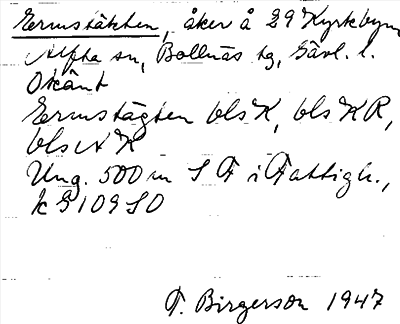 Ermstäkten, åker å 29 Kyrkbyn
Alfta sn, Bollnäs tg, Gävl. l.
Okänt
Ermstägten bls K, bls KR,
bls K
Ung. 500 m S F i Fattigh.,
k 9109 SO
F. Birgerson 1947